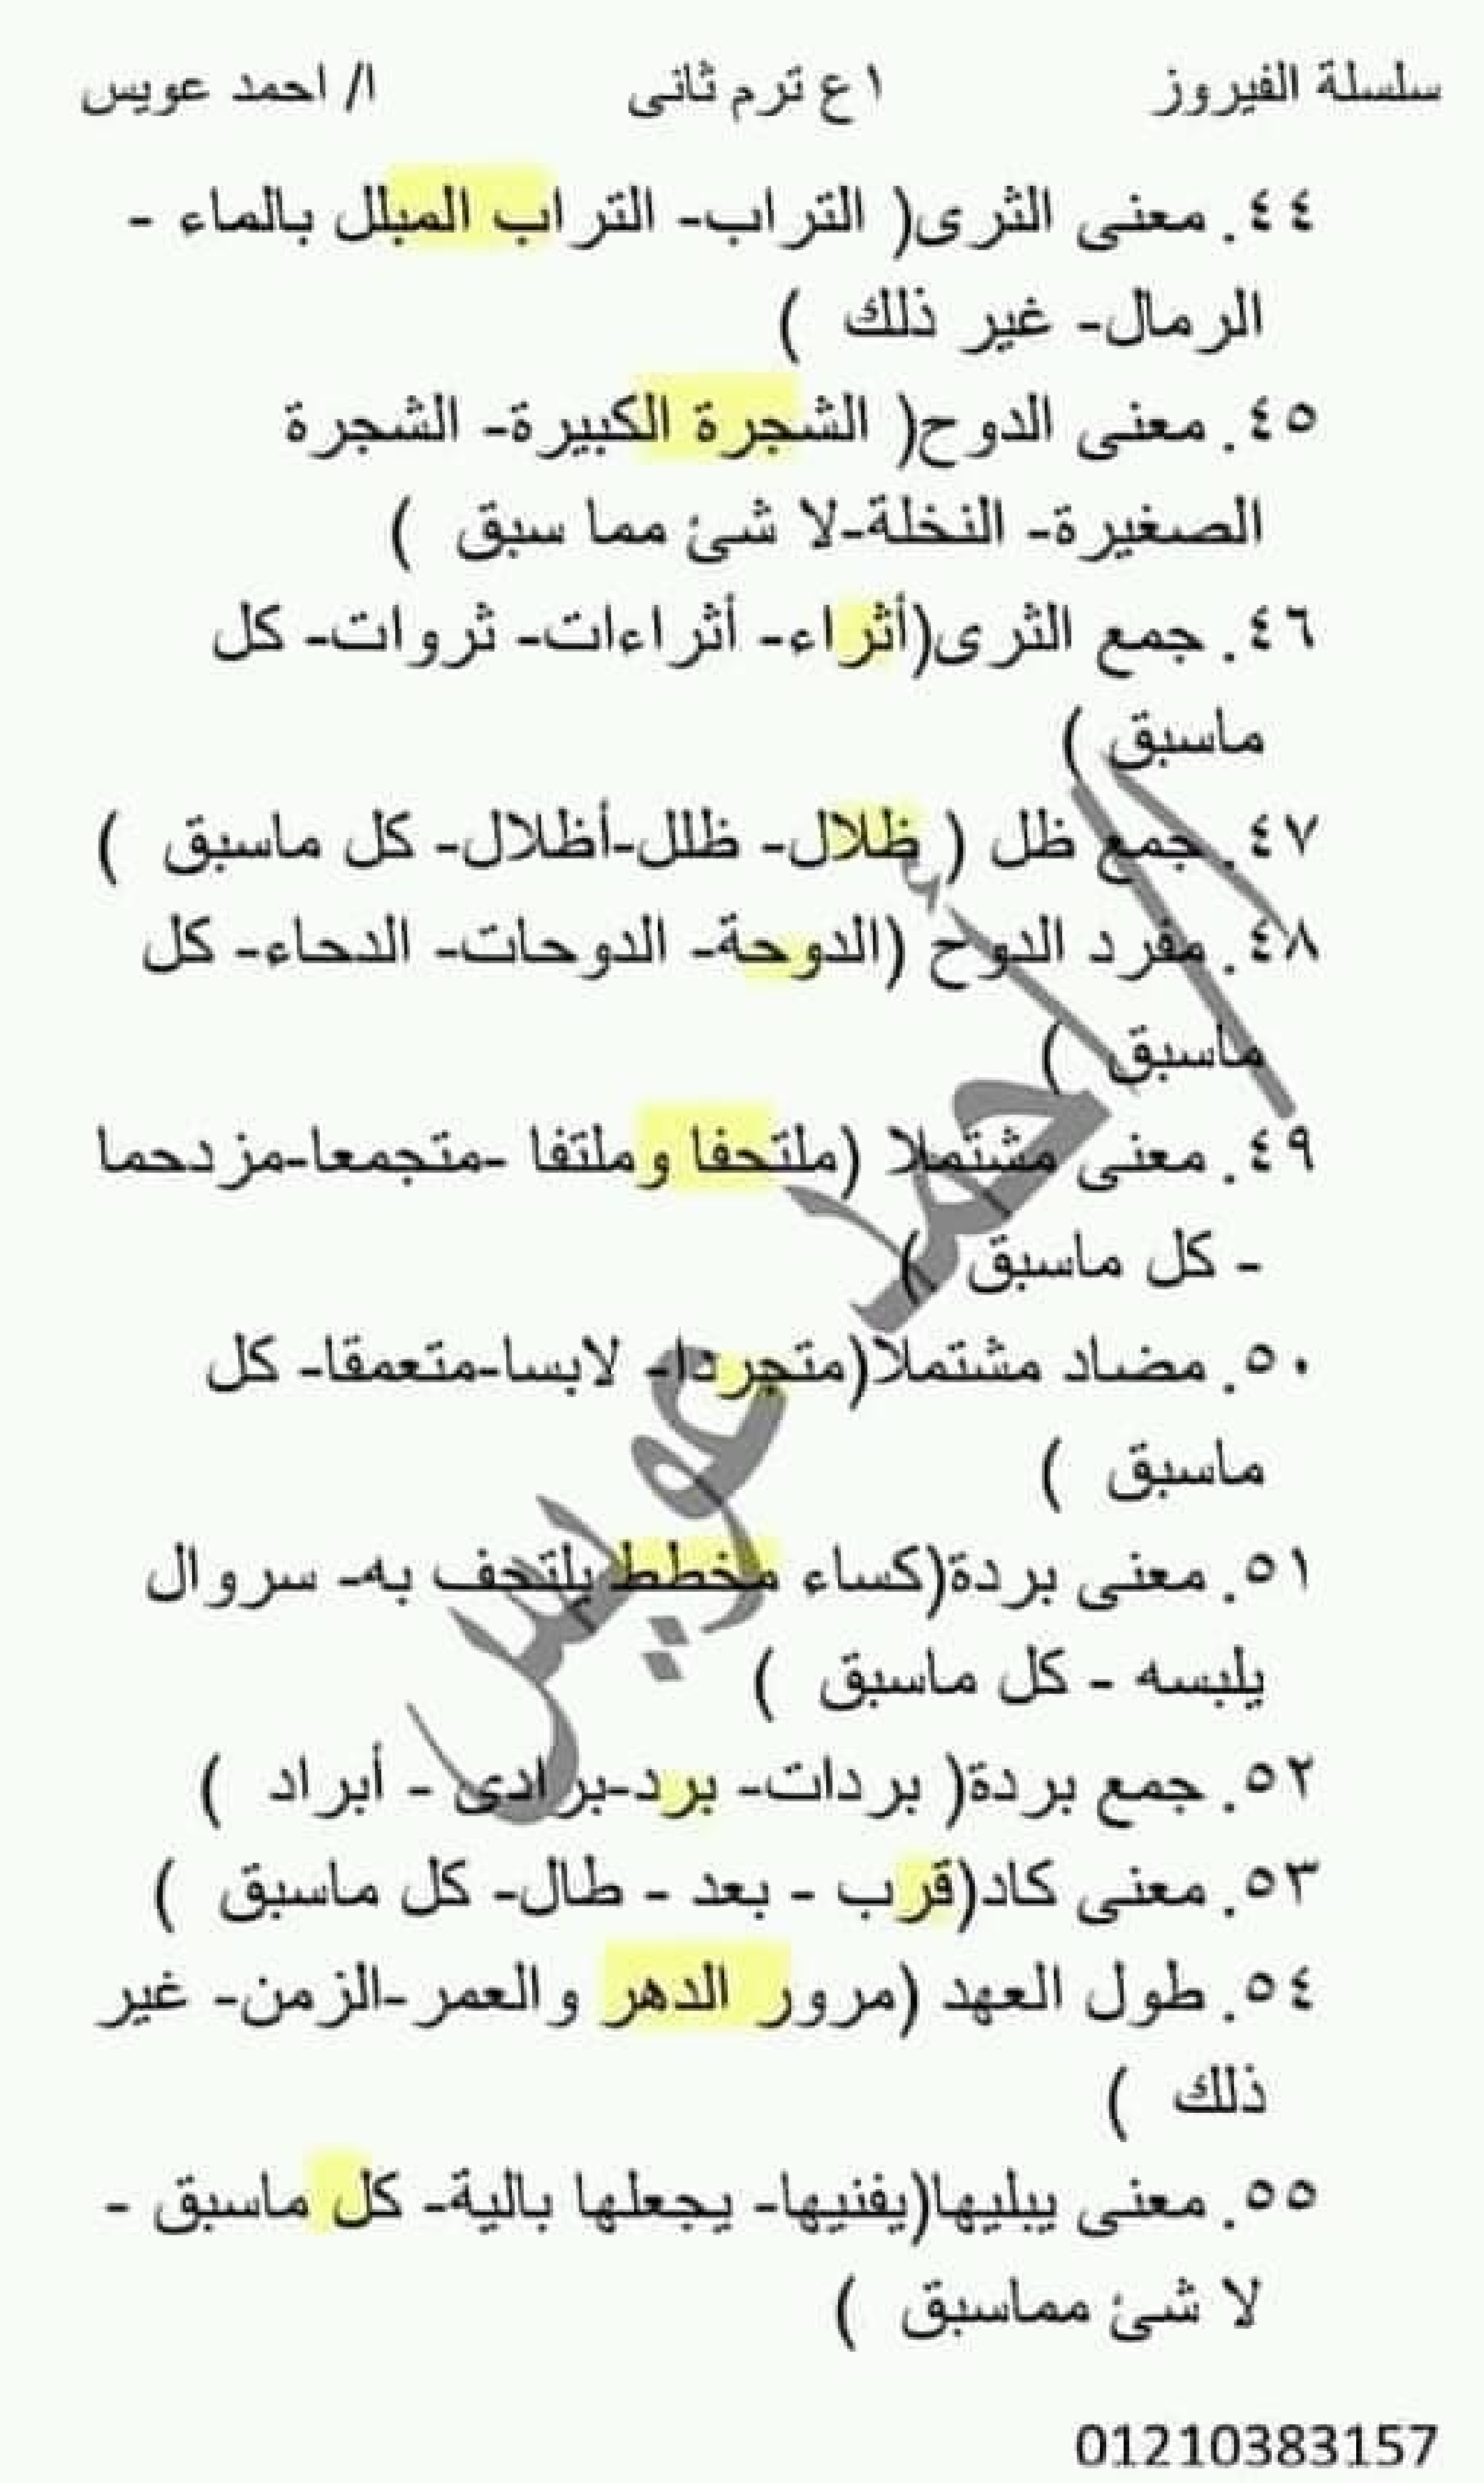 سلسلة الفيروز ١ع ترم ثانى ا/ احمد عويس
٤٤. معنى الثرى( التراب- التراب المبلل بالماء -
الرمال- غير ذلك )
٤٥. معنى الدوح( الشجرة الكبيرة- الشجرة
الصغيرة- النخلة-لا شئ مما سبق )
٤٦. جمع الثرى(أثراء- أثراءات- ثروات- كل
ماسبق )
٤٧. جمع ظل ( ظلال- ظلل-أظلال- كل ماسبق )
٤٨. مفرد الدوح (الدوحة- الدوحات- الدحاء- كل
ماسبق )
٤٩. معنى مشتملا (ملتحفا وملتفا -متجمعا-مزدحما
- كل ماسبق )
٥٠. مضاد مشتملا(متجردا- لابسا-متعمقا- كل
ماسبق )
٥١. معنى بردة(كساء مخطط يلتحف به- سروال
يلبسه - كل ماسبق )
٥٢. جمع بردة( بردات- برد-برادى - أبراد )
٥٣. معنى كاد(قرب - بعد - طال- كل ماسبق )
٥٤. طول العهد (مرور الدهر والعمر-الزمن- غير
ذلك )
٥٥. معنى يبليها(يفنيها- يجعلها بالية- كل ماسبق -
لا شئ مماسبق )
01210383157
أ/ أحمد عويس